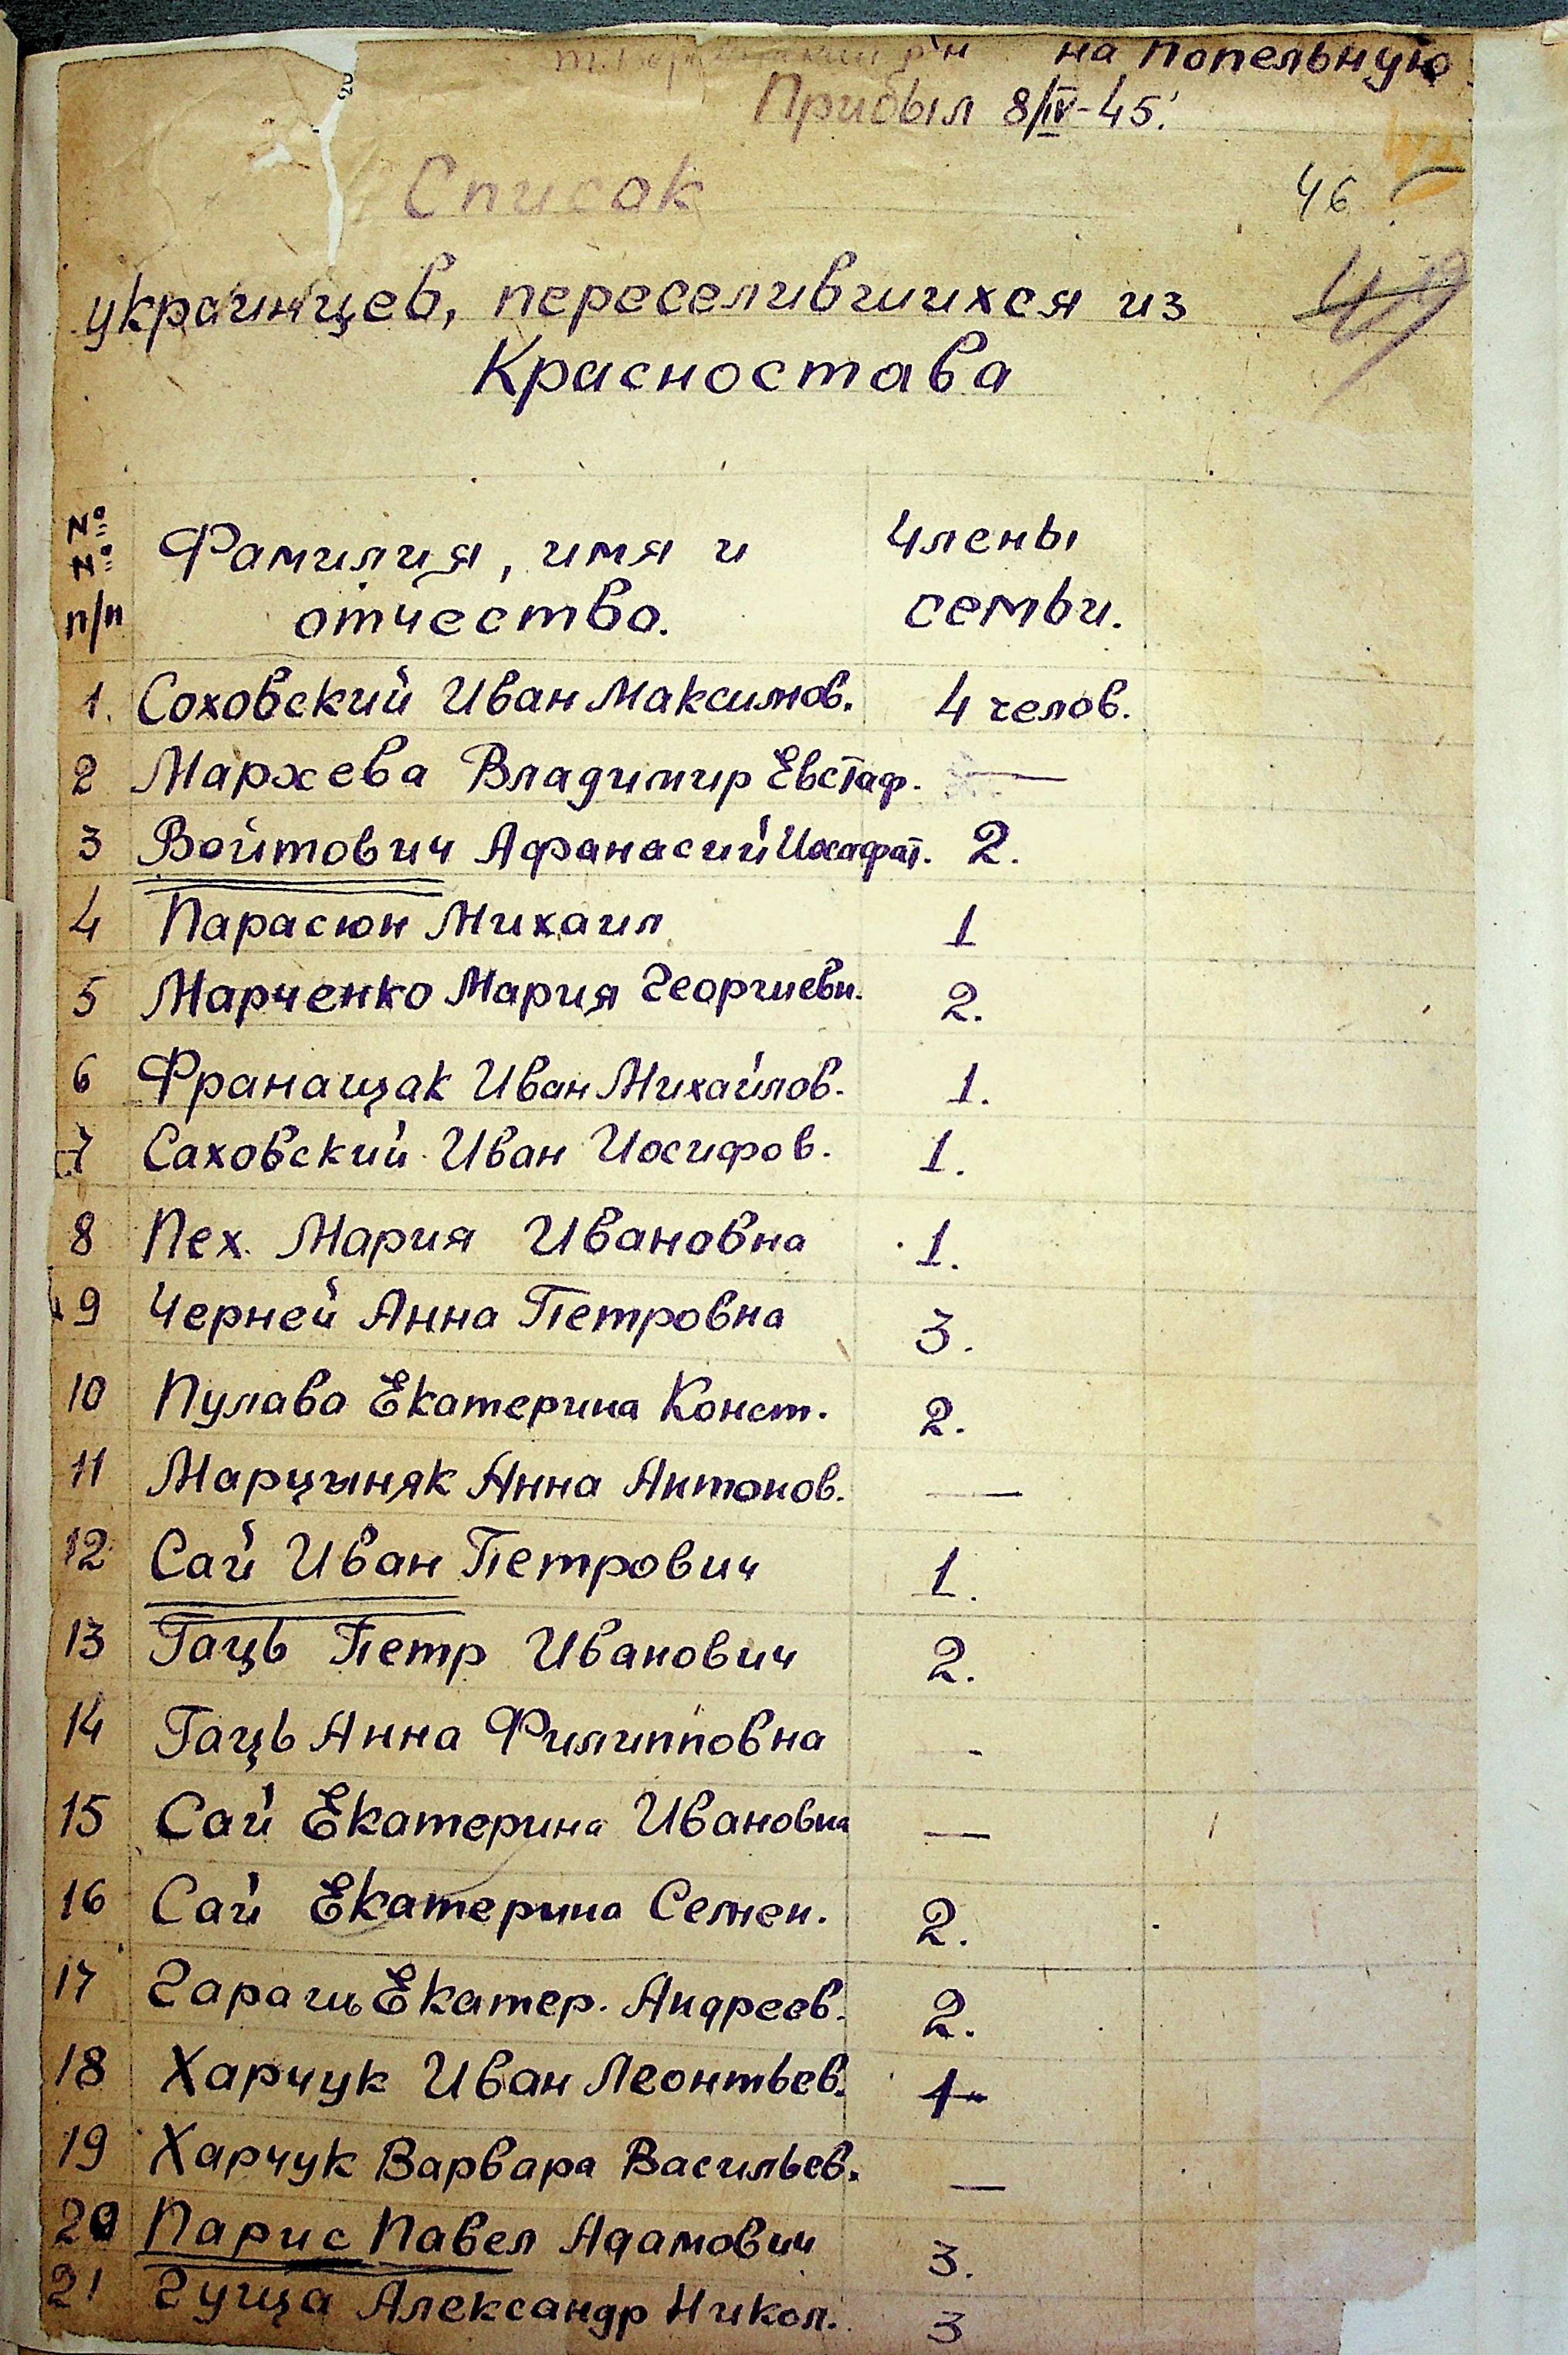 р-н на Попельную
Прибыл 8/IV-45.
Список
46
украинцев, переселившихся из
49
Красностава
№ № п/п Фамилия, имя и отчество. Члены семьи.
1. Соховский Иван Максимов. 4 челов.
2 Маржева Владимир Евстаф. —
3 Войтович Афанасий Иосафат. 2.
4 Парасюн Михаил 1
5 Марченко Мария Георгиевн. 2.
6 Франащак Иван Михайлов. 1.
7 Саховский Иван Иосифов. 1.
8 Пех. Мария Ивановна 1.
9 Черней Анна Петровна 3.
10 Пулава Екатерина Конст. 2.
11 Марцыняк Анна Антонов. —
12 Сай Иван Петрович 1.
13 Гаць Петр Иванович 2.
14 Гаць Анна Филипповна -
15 Сай Екатерина Ивановна —
16 Сай Екатерина Семен. 2.
17 Екатер. Андреев. 2.
18 Харчук Иван Леонтьев. 1
19 Харчук Варвара Васильев. —
20 Парис Павел Адамович 3.
21 Гуща Александр Никол. 3